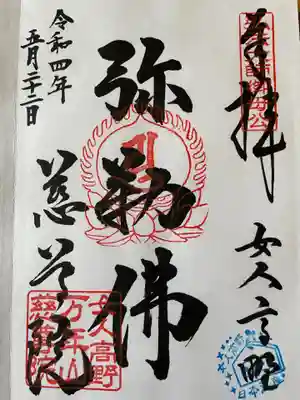 奉拝
女人高野
弥勒佛
慈尊院
令和四年
五月二十二日
女人高野
万年山
慈尊院